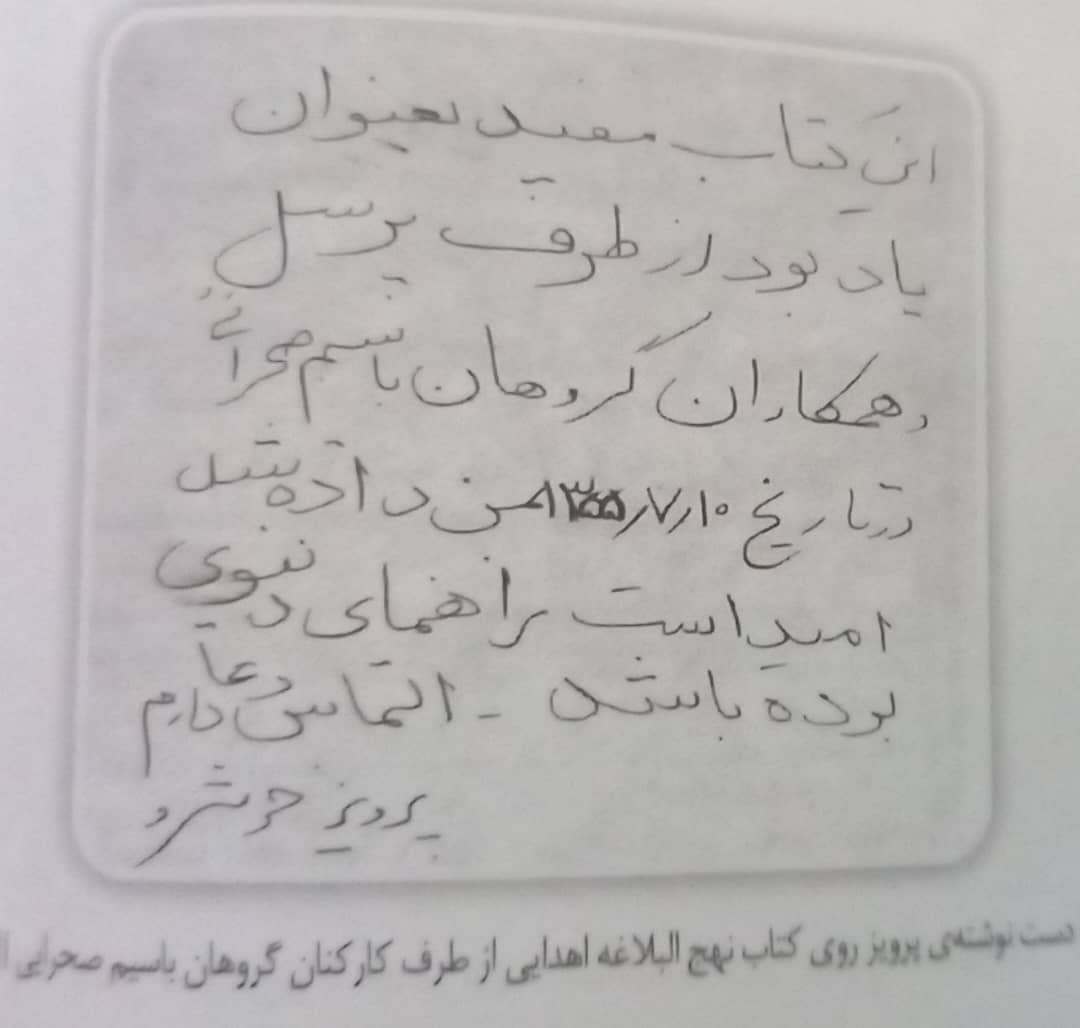 این کتاب مفید بعنوان
یاد بود از طرف پرسنل
و همکاران گروهان باسیم صحرائی
در تاریخ ۱۳۵۵/۷/۱۰ بمن داده شد
امید است راهنمای دنیوی
بوده باشد - التماس دعا دارم
پرویز
دست نوشته‌ی پرویز روی کتاب نهج البلاغه اهدایی از طرف کارکنان گروهان باسیم صحرایی